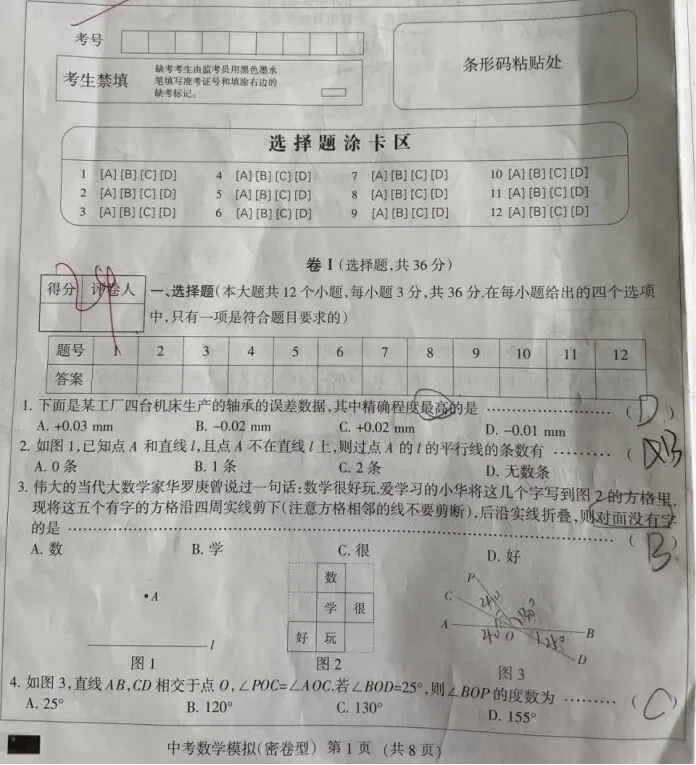 考号
考生禁填 缺考考生由监考员用黑色墨水
笔填写准考证号和填涂右边的
缺考标记。
条形码粘贴处
选择题涂卡区
1 [A] [B] [C] [D] 4 [A] [B] [C] [D] 7 [A] [B] [C] [D] 10 [A] [B] [C] [D]
2 [A] [B] [C] [D] 5 [A] [B] [C] [D] 8 [A] [B] [C] [D] 11 [A] [B] [C] [D]
3 [A] [B] [C] [D] 6 [A] [B] [C] [D] 9 [A] [B] [C] [D] 12 [A] [B] [C] [D]
卷Ⅰ(选择题,共36分)
得分 评卷人
一、选择题(本大题共12个小题,每小题3分,共36分.在每小题给出的四个选项
中,只有一项是符合题目要求的)
题号 1 2 3 4 5 6 7 8 9 10 11 12
答案
1. 下面是某工厂四台机床生产的轴承的误差数据,其中精确程度最高的是 ………………… ( D )
A. +0.03 mm B. -0.02 mm C. +0.02 mm D. -0.01 mm
2. 如图1,已知点A和直线l,且点A不在直线l上,则过点A的l的平行线的条数有 ……… ( B )
A. 0条 B. 1条 C. 2条 D. 无数条
3. 伟大的当代大数学家华罗庚曾说过一句话:数学很好玩.爱学习的小华将这几个字写到图2的方格里.
现将这五个有字的方格沿四周实线剪下(注意方格相邻的线不要剪断),后沿实线折叠,则对面没有字
的是 ………………………………………………………………… ( B )
A. 数 B. 学 C. 很 D. 好
•A
l
图1
数
学 很
好 玩
图2
P
C
A
O
B
D
130°
25°
图3
4. 如图3,直线AB,CD相交于点O,∠POC=∠AOC.若∠BOD=25°,则∠BOP的度数为 ……… ( C )
A. 25° B. 120° C. 130° D. 155°
中考数学模拟(密卷型) 第1页 (共8页)